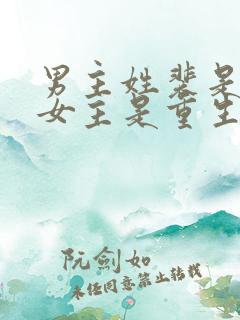 男主姓裴是
女主是重生
阮剑如
未经同意禁止转载